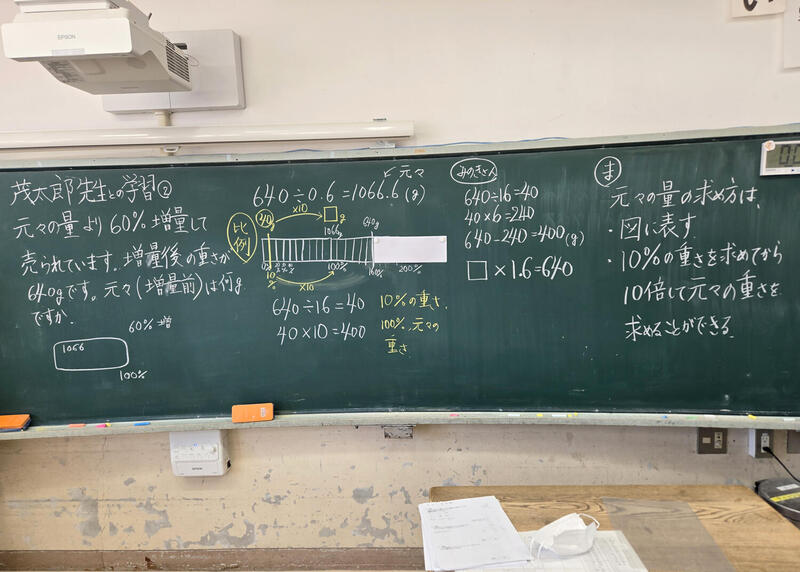 EPSON
茂太郎先生との学習②
元々の量より60%増量して
売られています。増量後の重さが
640gです。元々(増量前)は何g
ですか。
60%増
1066
100%
元々
640÷0.6=1066.6(g)
比例
×10
□g
1066g
640g
0%
10%
100%
160%
200%
×10
640÷16=40
10%の重さ
40×10=400
100%元々の
重さ
640÷16=40
40×6=240
640-240=400(g)
□×1.6=640
ま
元々の量の求め方は、
・図に表す
・10%の重さを求めてから
10倍して元々の重さを
求めることができる。
EPSON